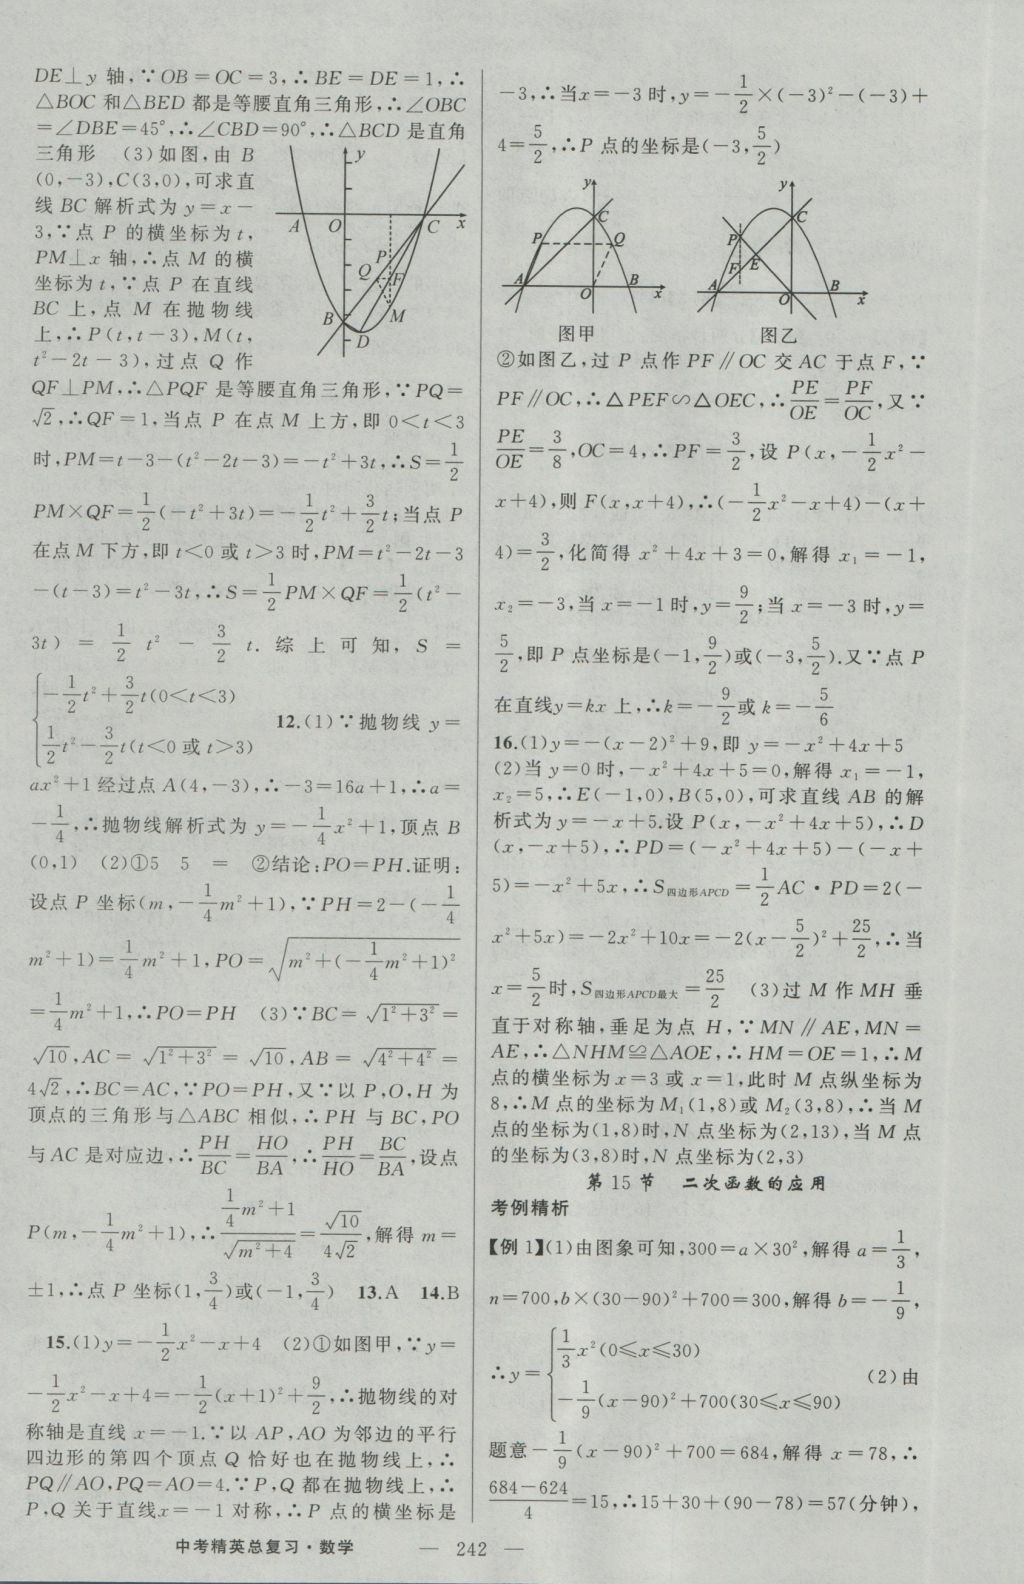 DE⊥y 轴,∵OB=OC=3,∴BE=DE=1,∴
△BOC 和△BED 都是等腰直角三角形,∴∠OBC
=∠DBE=45°,∴∠CBD=90°,∴△BCD 是直角
三角形 (3)如图,由 B
(0,-3),C(3,0),可求直
线 BC 解析式为 y=x-
3,∵点 P 的横坐标为 t,
PM⊥x 轴,∴点 M 的横
坐标为 t,∵点 P 在直线
BC 上,点 M 在抛物线
上,∴P(t,t-3),M(t,
t²-2t-3),过点 Q 作
y
A O C x
P
Q F
B M
D
QF⊥PM,∴△PQF 是等腰直角三角形,∵PQ=
√2,∴QF=1,当点 P 在点 M 上方,即 0<t<3
时,PM=t-3-(t²-2t-3)=-t²+3t,∴S=1/2
PM×QF=1/2(-t²+3t)=-1/2t²+3/2t;当点 P
在点 M 下方,即 t<0 或 t>3 时,PM=t²-2t-3
-(t-3)=t²-3t,∴S=1/2PM×QF=1/2(t²-
3t)=1/2t²-3/2t.综上可知,S=
{-1/2t²+3/2t(0<t<3)
1/2t²-3/2t(t<0 或 t>3) 12.(1)∵抛物线 y=
ax²+1 经过点 A(4,-3),∴-3=16a+1,∴a=
-1/4,∴抛物线解析式为 y=-1/4x²+1,顶点 B
(0,1) (2)①5 5 = ②结论:PO=PH.证明:
设点 P 坐标(m,-1/4m²+1),∵PH=2-(-1/4
m²+1)=1/4m²+1,PO=√(m²+(-1/4m²+1)²)
=1/4m²+1,∴PO=PH (3)∵BC=√(1²+3²)=
√10,AC=√(1²+3²)=√10,AB=√(4²+4²)=
4√2,∴BC=AC,∵PO=PH,又∵以 P,O,H 为
顶点的三角形与△ABC 相似,∴PH 与 BC,PO
与 AC 是对应边,∴PH/BC=HO/BA,∴PH/HO=BC/BA,设点
P(m,-1/4m²+1),∴(1/4m²+1)/√(m²+4)=√10/(4√2),解得 m=
±1,∴点 P 坐标(1,3/4)或(-1,3/4) 13.A 14.B
15.(1)y=-1/2x²-x+4 (2)①如图甲,∵y=
-1/2x²-x+4=-1/2(x+1)²+9/2,∴抛物线的对
称轴是直线 x=-1.∵以 AP,AO 为邻边的平行
四边形的第四个顶点 Q 恰好也在抛物线上,∴
PQ∥AO,PQ=AO=4.∵P,Q 都在抛物线上,∴
P,Q 关于直线x=-1 对称,∴P 点的横坐标是
-3,∴当x=-3 时,y=-1/2×(-3)²-(-3)+
4=5/2,∴P 点的坐标是(-3,5/2)
y
C
P Q
A O B x
图甲
y
C
P
F E
A O B x
图乙
②如图乙,过 P 点作 PF∥OC 交 AC 于点 F,∵
PF∥OC,∴△PEF∽△OEC,∴PE/OE=PF/OC,又∵
PE/OE=3/8,OC=4,∴PF=3/2,设 P(x,-1/2x²-
x+4),则 F(x,x+4),∴(-1/2x²-x+4)-(x+
4)=3/2,化简得 x²+4x+3=0,解得 x₁=-1,
x₂=-3,当 x=-1 时,y=9/2;当 x=-3 时,y=
5/2,即 P 点坐标是(-1,9/2)或(-3,5/2).又∵点 P
在直线y=kx 上,∴k=-9/2或 k=-5/6
16.(1)y=-(x-2)²+9,即 y=-x²+4x+5
(2)当 y=0 时,-x²+4x+5=0,解得 x₁=-1,
x₂=5,∴E(-1,0),B(5,0),可求直线 AB 的解
析式为 y=-x+5.设 P(x,-x²+4x+5),∴D
(x,-x+5),∴PD=(-x²+4x+5)-(-x+
5)=-x²+5x,∴S四边形APCD=1/2AC·PD=2(-
x²+5x)=-2x²+10x=-2(x-5/2)²+25/2,∴当
x=5/2时,S四边形APCD最大=25/2 (3)过 M 作 MH 垂
直于对称轴,垂足为点 H,∵MN∥AE,MN=
AE,∴△NHM≌△AOE,∴HM=OE=1,∴M
点的横坐标为 x=3 或 x=1,此时 M 点纵坐标为
8,∴M 点的坐标为 M₁(1,8)或 M₂(3,8),∴当 M
点的坐标为(1,8)时,N 点坐标为(2,13),当 M 点
的坐标为(3,8)时,N 点坐标为(2,3)
第 15 节 二次函数的应用
考例精析
【例 1】(1)由图象可知,300=a×30²,解得 a=1/3,
n=700,b×(30-90)²+700=300,解得 b=-1/9,
∴y={1/3x²(0≤x≤30)
-1/9(x-90)²+700(30≤x≤90) (2)由
题意-1/9(x-90)²+700=684,解得 x=78,∴
(684-624)/4=15,∴15+30+(90-78)=57(分钟),
中考精英总复习·数学 — 242 —